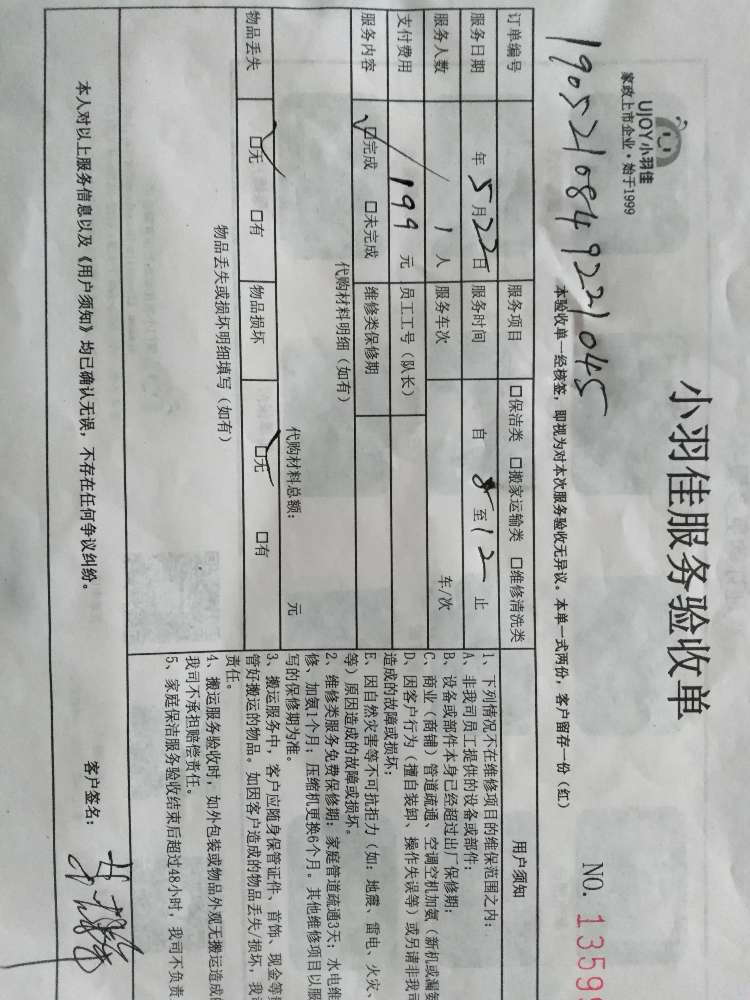 UJOY小羽佳
家政上市企业·始于1999
小羽佳服务验收单
NO. 13599
本验收单一经核签，即视为对本次服务验收无异议。本单一式两份，客户留存一份（红）
订单编号 1905210849221045
服务项目 □保洁类 □搬家运输类 □维修清洗类
服务日期 年5月22日 服务时间 自 8 至 12 止
服务人数 1 人 服务车次 车/次
支付费用 199 元 员工工号（队长）
服务内容 □完成 □未完成 维修类保修期
代购材料明细（如有）
代购材料总额： 元
物品丢失 □无 □有 物品损坏 □无 □有
物品丢失或损坏明细填写（如有）
用户须知
1、下列情况不在维修项目的维保范围之内：
A、非我司员工提供的设备或部件；
B、设备或部件本身已经超过出厂保修期；
C、商业（商铺）管道疏通、空调空机加氨（新机或漏氨
D、因客户行为（擅自装卸、操作失误等）或另请非我司
造成的故障或损坏；
E、因自然灾害等不可抗拒力（如：地震、雷电、火灾、
等）原因造成的故障或损坏。
2、维修类服务免费保修期：家庭管道疏通3天；水电维
修、加氨1个月；压缩机更换6个月。其他维修项目以服
写的保修期为准。
3、搬运服务中，客户应随身保管证件、首饰、现金等
管好搬运的物品。如因客户造成的物品丢失/损坏，我
责任。
4、搬运服务验收时，如外包装或物品外观无搬运造成
我司不承担赔偿责任。
5、家庭保洁服务验收结束后超过48小时，我司不负责
本人对以上服务信息以及《用户须知》均已确认无误，不存在任何争议纠纷。
客户签名：